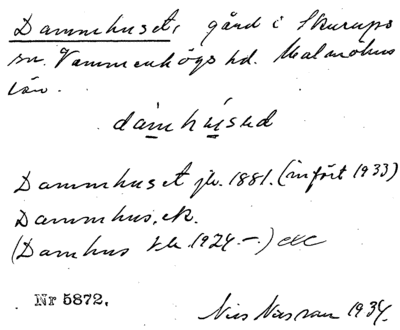 Dammhuset, gård i Skurups
sn. Vemmenhögs hd. Malmöhus
län.
damhused
Dammhuset jb. 1881. (infört 1933)
Dammhus, ek.
(Damhus 1924 –.)
Nr 5872.
Nils Nilsson 1934.